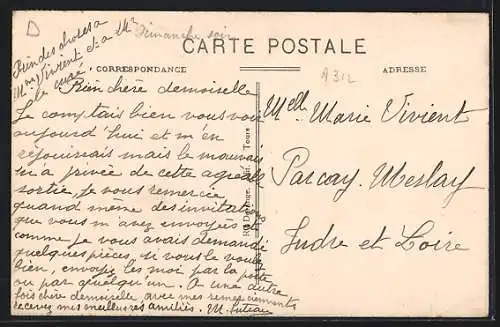 D
Dimanche soir
Bien des choses a
Mme Vivient et a Mr
le curé
CARTE POSTALE
A312
CORRESPONDANCE
ADRESSE
Bien chère demoiselle
Je comptais bien vous voir
aujourd'hui et m'en
réjouissais mais le mauvais
m'a privée de cette agréable
sortie, je vous remercie
quand même des invitations
que vous m'avez envoyées et
comme je vous avais demandé
quelques pièces, si vous le voulez
bien, envoyez les moi par la poste
ou par quelqu'un. A une autre
fois chère demoiselle, avec mes remerciements
recevez mes meilleures amitiés. M.
Tours
Melle Marie Vivient
Parcay. Meslay
Indre et Loire